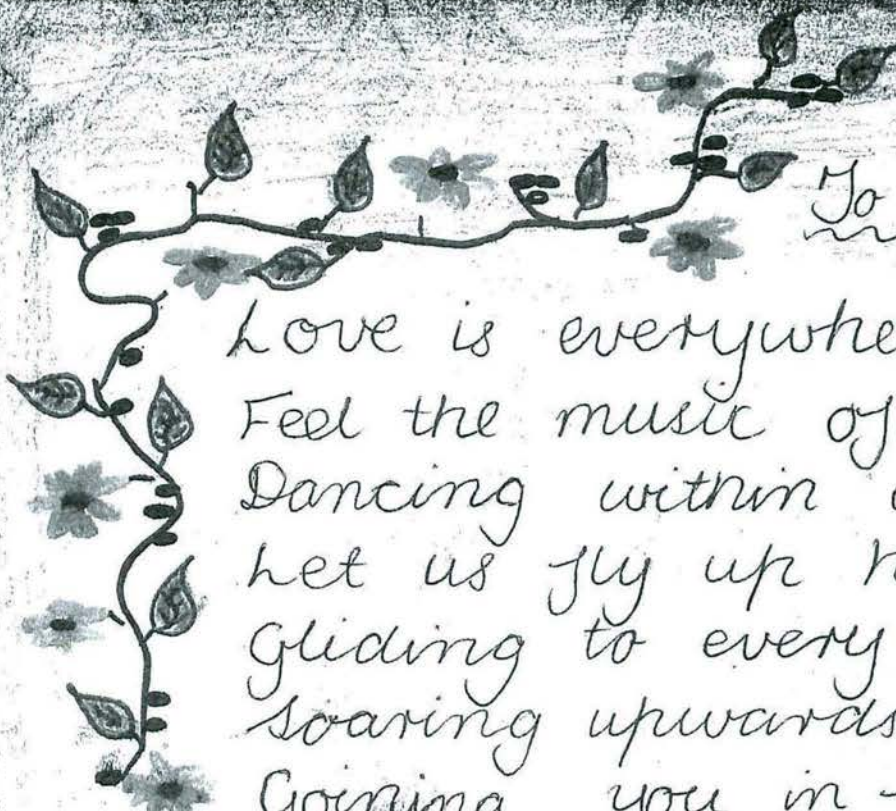 To
Love is everywhe
Feel the music of
Dancing within
Let us fly up h
Gliding to every
Soaring upwards
Goining you in